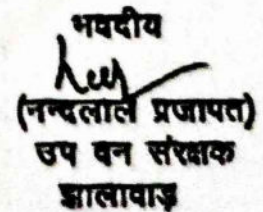 भवदीय
(नन्दलाल प्रजापत)
उप वन संरक्षक
झालावाड़